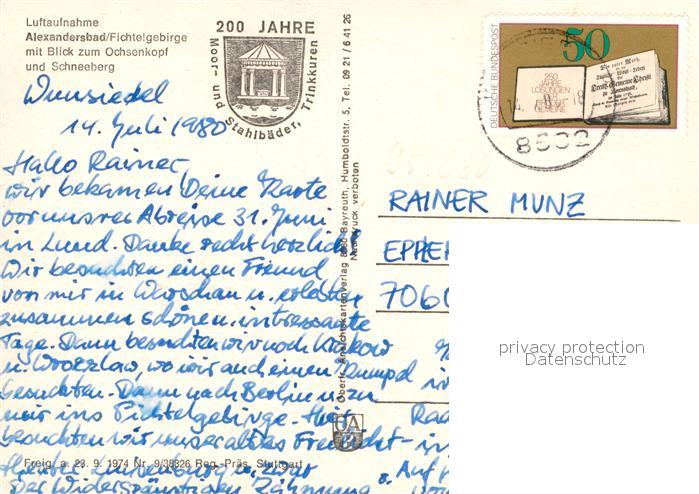 Luftaufnahme
Alexandersbad/Fichtelgebirge
mit Blick zum Ochsenkopf
und Schneeberg
200 JAHRE
Moor- und Stahlbäder, Trinkkuren
DEUTSCHE BUNDESPOST
50
250
JAHRE
LOSUNGEN
DER
BRÜDER-
GEMEINE
8592
Wunsiedel
14. Juli 1980
Hallo Rainer,
wir bekamen Deine Karte
vor unsrer Abreise 31. Juni
in Lund. Danke recht herzlich!
Wir besuchten einen Freund
von mir in Warschau u. erlebten
zusammen schöne u. interessante
Tage. Dann besuchten wir noch Krakow
u. Wroclaw, wo wir auch einen Kumpel
besuchten. Dann nach Berlin u. zu
mir ins Fichtelgebirge. Hier
besuchten wir unser altes Freilicht-
theater Luisenburg u.
Der Widerspänstigen Zähmung
Oberfr. Ansichtskartenverlag 8580 Bayreuth, Humboldtstr. 5, Tel. 09 21 / 6 41 26
Nachdruck verboten
RAINER MUNZ
EPPE
7060
Rad
in
Auf
von
privacy protection
Datenschutz
Freig. d. 23. 9. 1974 Nr. 9/38326 Reg.-Präs. Stuttgart